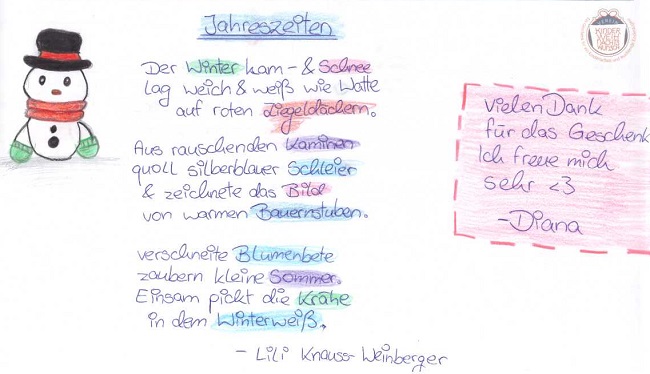 Jahreszeiten
Der Winter kam - & Schnee
lag weich & weiß wie Watte
auf roten Ziegeldächern.
Aus rauschenden Kaminen
quoll silberblauer Schleier
& zeichnete das Bild
von warmen Bauernstuben.
verschneite Blumenbete
zaubern kleine Sommer.
Einsam pickt die Krähe
in dem Winterweiß.
- Lili Knauss-Weinberger
vielen Dank
für das Geschenk
Ich freue mich
sehr <3
-Diana